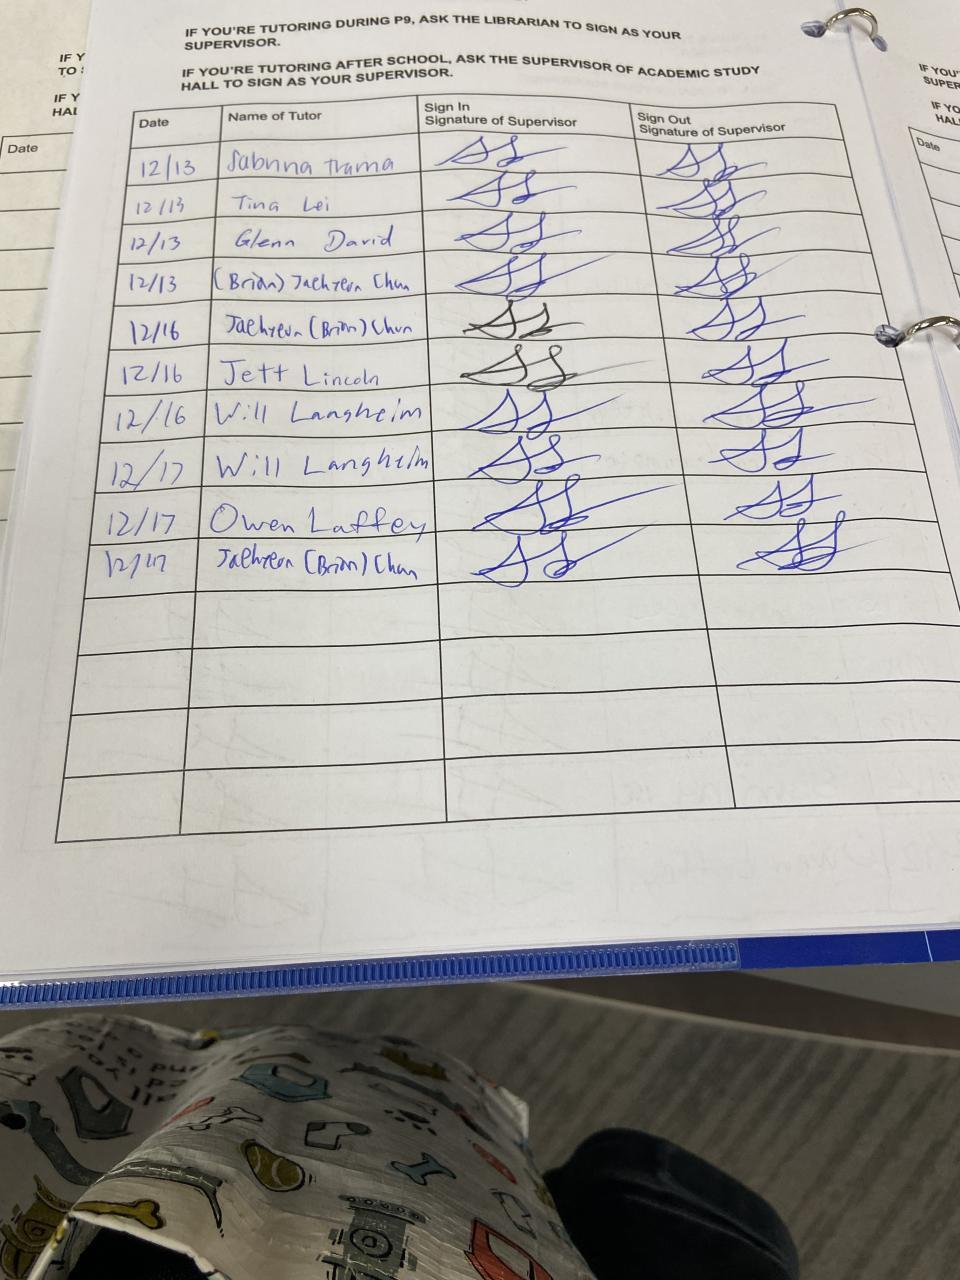 IF YOU'RE TUTORING DURING P9, ASK THE LIBRARIAN TO SIGN AS YOUR
SUPERVISOR.
IF YOU'RE TUTORING AFTER SCHOOL, ASK THE SUPERVISOR OF ACADEMIC STUDY
HALL TO SIGN AS YOUR SUPERVISOR.
Date Name of Tutor Sign In Signature of Supervisor Sign Out Signature of Supervisor
12/13 Sabrina Trama
12/13 Tina Lei
12/13 Glenn David
12/13 (Brian) Jaehyeon Chun
12/16 Jaehyeon (Brian) Chun
12/16 Jett Lincoln
12/16 Will Langheim
12/17 Will Langheim
12/17 Owen Laffey
12/17 Jaehyeon (Brian) Chun
IF Y
TO
IF Y
HAL
Date
IF YOU'
SUPER
IF YO
HAL
Date